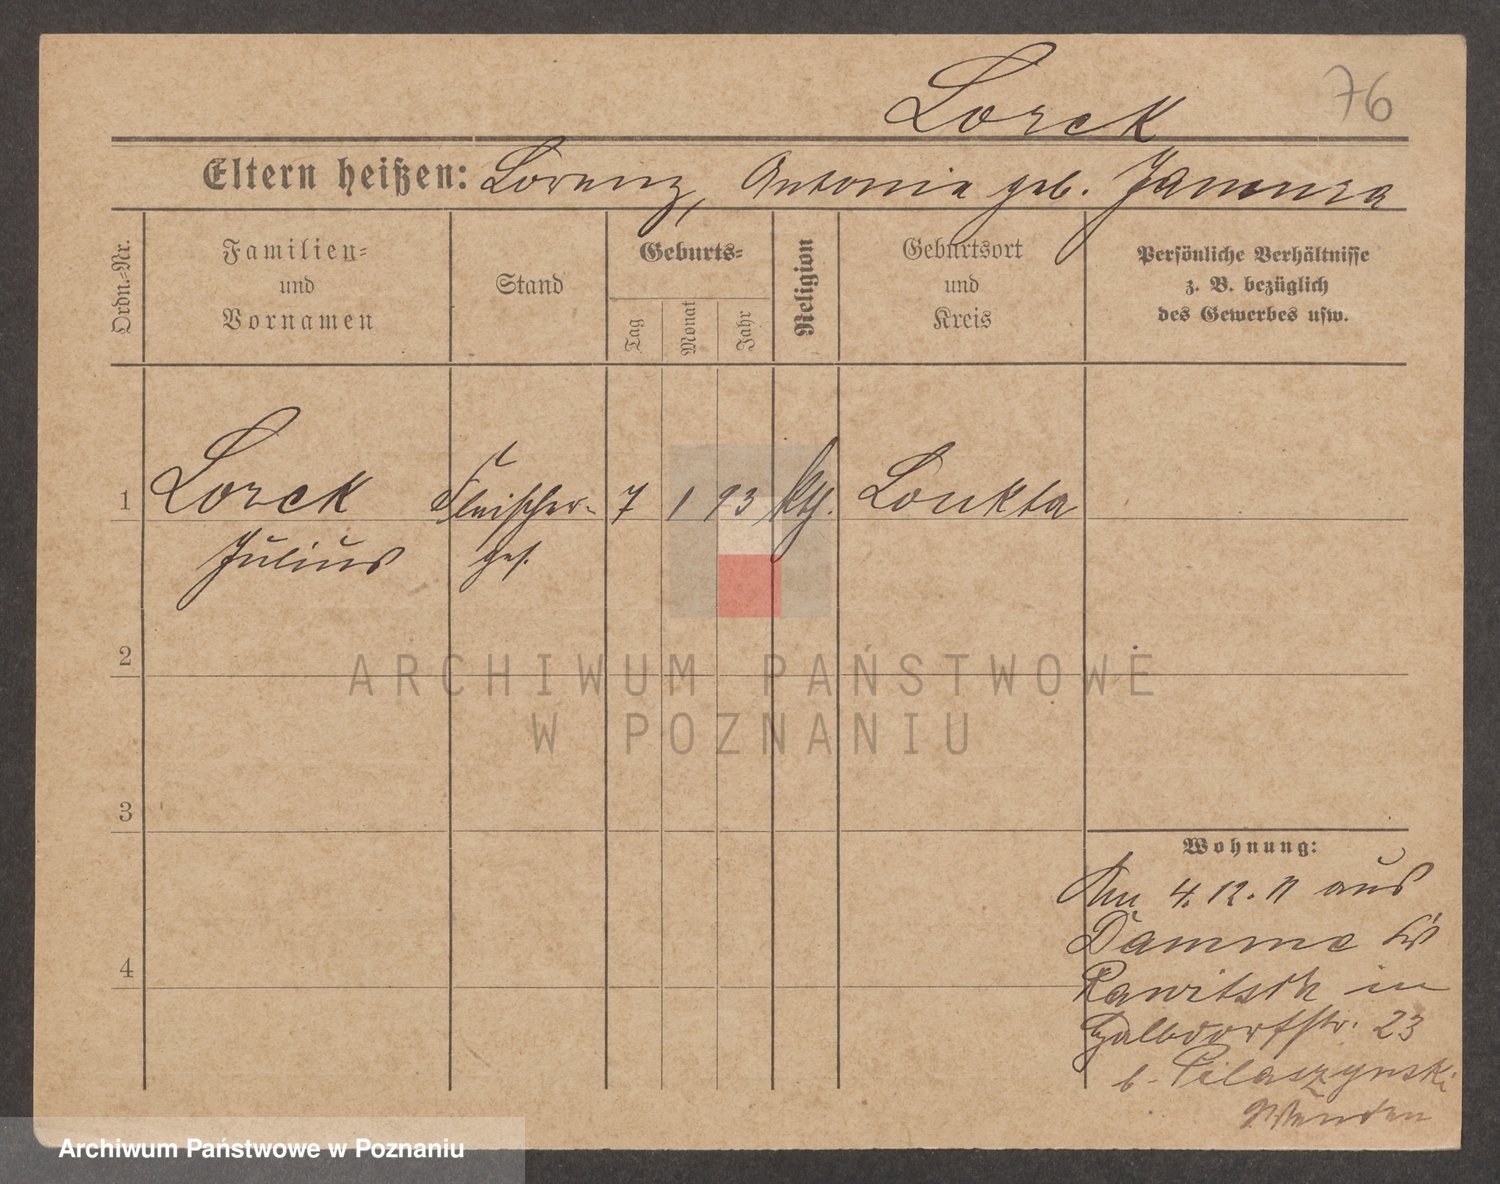 Lorck
76
Eltern heißen: Lorenz, Antonie geb.
Ordn.-Nr.
Familien-
und
Vornamen
Stand
Geburts-
Tag
Monat
Jahr
Religion
Geburtsort
und
Kreis
Persönliche Verhältnisse
z. B. bezüglich
des Gewerbes usw.
1 Lorck Fleischer- 7 1 93 kth. Loukta
Julius ges.
2
3
4
Wohnung:
4.12.11 aus
Damme Kr
Rawitsch in
Halbdorfstr. 23
b. Pilaszynski
ARCHIWUM PAŃSTWOWE
W POZNANIU
Archiwum Państwowe w Poznaniu